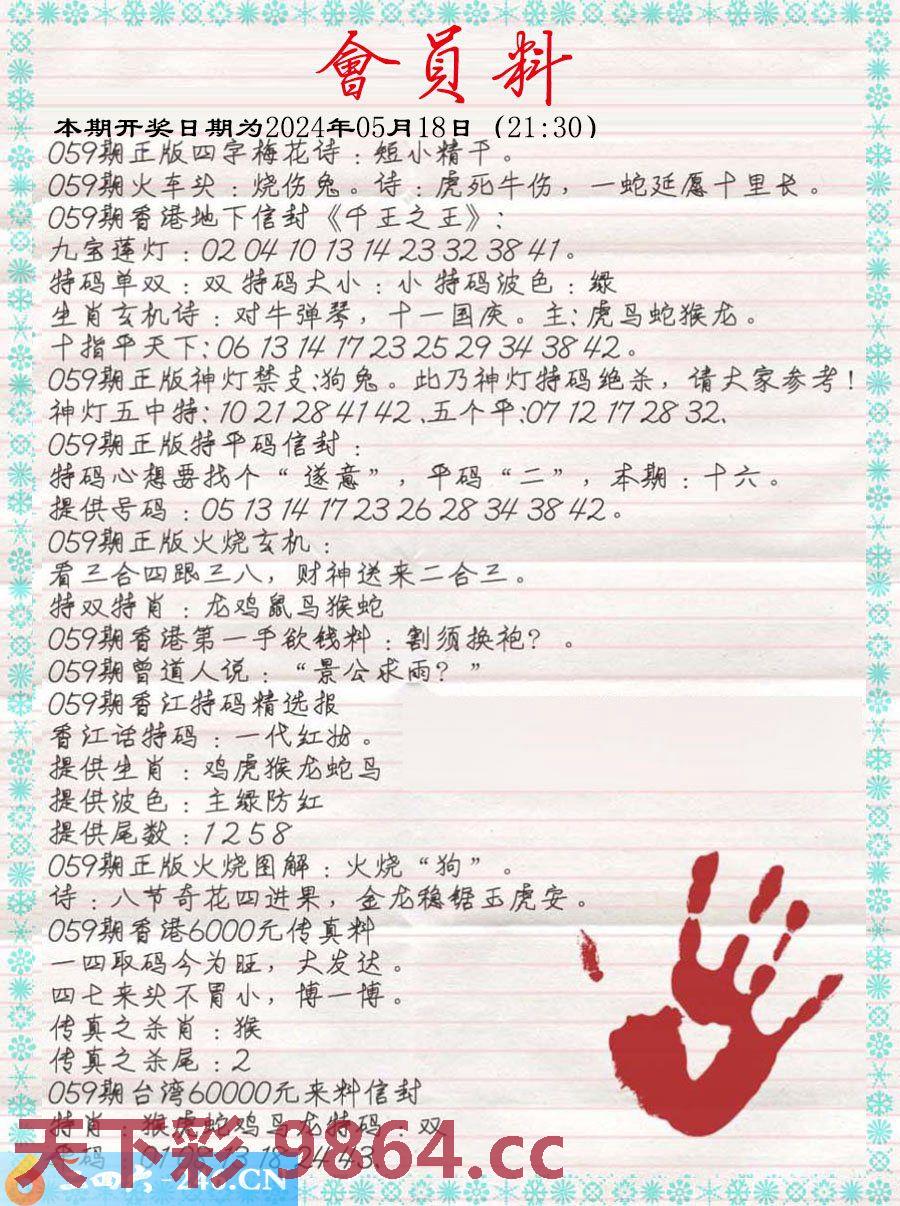 會員料
本期开奖日期为2024年05月18日（21:30）
059期正版四字梅花诗：短小精干。
059期火车头：烧伤兔。诗：虎死牛伤，一蛇延愿十里长。
059期香港地下信封《千王之王》：
九宝莲灯：02 04 10 13 14 23 32 38 41。
特码单双：双 特码大小：小 特码波色：绿
生肖玄机诗：对牛弹琴，十一国庆。主：虎鸟蛇猴龙。
十指平天下：06 13 14 17 23 25 29 34 38 42。
059期正版神灯禁支:狗兔。此乃神灯特码绝杀，请大家参考！
神灯五中特：10 21 28 41 42、五个平:07 12 17 28 32、
059期正版特平码信封：
特码心想要找个“遂意”，平码“二”，本期：十六。
提供号码：05 13 14 17 23 26 28 34 38 42。
059期正版火烧玄机：
看三合四跟三八，财神送来二合三。
特双特肖：龙鸡鼠马猴蛇
059期香港第一手欲钱料：割须换袍？。
059期曾道人说：“景公求雨？”
059期香江特码精选报
香江话特码：一代红妆。
提供生肖：鸡虎猴龙蛇马
提供波色：主绿防红
提供尾数：1 2 5 8
059期正版火烧图解：火烧“狗”。
诗：八节奇花四进果，金龙稳锯玉虎安。
059期香港6000元传真料
一四取码今为旺，大发达。
四七来头不冒小，博一博。
传真之杀肖：猴
传真之杀尾：2
059期台湾60000元来料信封
特肖：猴虎蛇鸡马龙特码：双
码：01 28 13 18 24 43.
天下彩.9864.cc
-246.CN